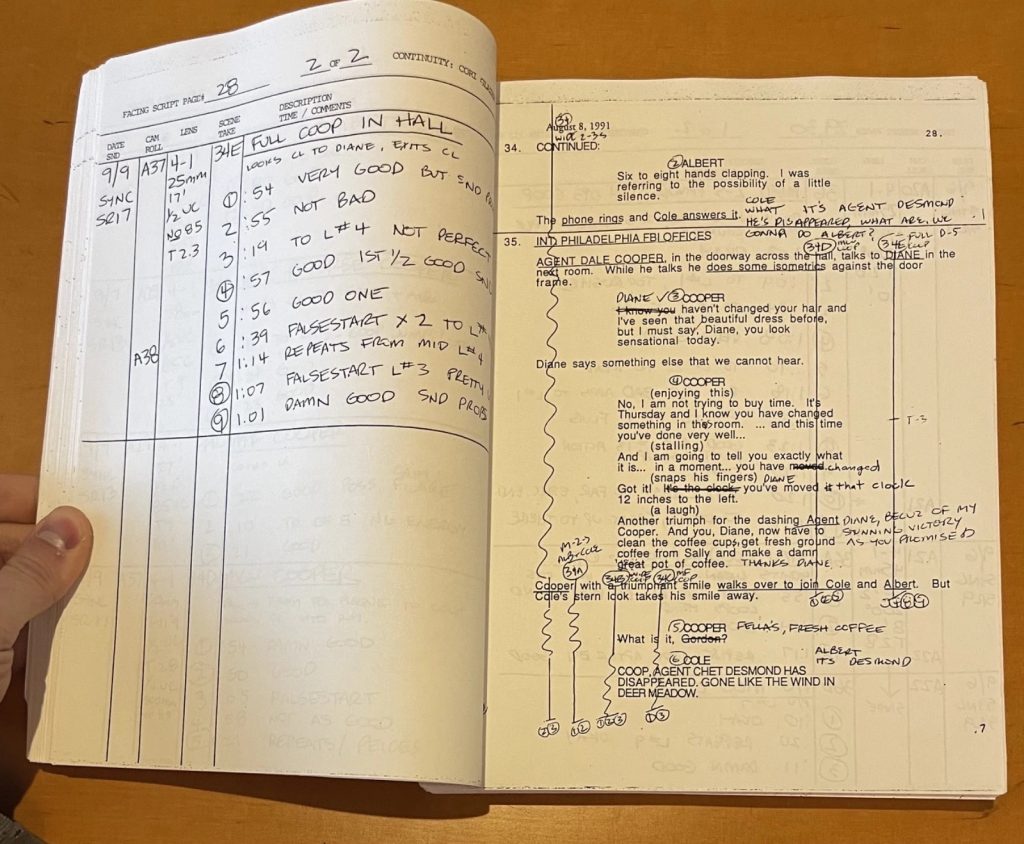 FACING SCRIPT PAGE# 28
2 OF 2
CONTINUITY: CORI
DATE SND
CAM ROLL
LENS
SCENE TAKE
DESCRIPTION TIME / COMMENTS
9/9 A37 4-1 34E FULL COOP IN HALL
SYNC 25mm LOOKS CL TO DIANE, EXITS CL
SR17 17' ① :54 VERY GOOD BUT SND
1/2 UC 2 :55 NOT BAD
NO 85 3 :19 TO L#4 NOT PERFECT
T2.3 ④ :57 GOOD 1ST 1/2 GOOD
5 :56 GOOD ONE
6 :39 FALSESTART X 2 TO L#
A38 7 1:14 REPEATS FROM MID L#4
⑧ 1:07 FALSESTART L#3 PRETTY
⑨ 1:01 DAMN GOOD SND PROBS
34
August 8, 1991
28.
34. CONTINUED:
② ALBERT
Six to eight hands clapping. I was
referring to the possibility of a little
silence.
COLE
The phone rings and Cole answers it. WHAT IT'S AGENT DESMOND
HE'S DISAPPEARED, WHAT ARE WE
GONNA DO ALBERT?
35. INT PHILADELPHIA FBI OFFICES
34D 34E FULL D-5
AGENT DALE COOPER, in the doorway across the hall, talks to DIANE in the
next room. While he talks he does some isometrics against the door
frame.
DIANE ③ COOPER
I know you haven't changed your hair and
I've seen that beautiful dress before,
but I must say, Diane, you look
sensational today.
Diane says something else that we cannot hear.
④ COOPER
(enjoying this)
No, I am not trying to buy time. It's
Thursday and I know you have changed
something in this room. ... and this time
T-3
you've done very well...
(stalling)
And I am going to tell you exactly what
it is... in a moment... you have moved changed
(snaps his fingers) DIANE
Got it! It's the clock, you've moved it that clock
12 inches to the left.
(a laugh)
Another triumph for the dashing Agent DIANE, BECUZ OF MY
Cooper. And you, Diane, now have to STUNNING VICTORY
clean the coffee cups, get fresh ground AS YOU PROMISED
coffee from Sally and make a damn
great pot of coffee. THANKS DIANE.
34A
34B
Cooper with a triumphant smile walks over to join Cole and Albert. But
Cole's stern look takes his smile away.
⑤ COOPER FELLA'S, FRESH COFFEE
What is it, Gordon?
ALBERT
ITS DESMOND
⑥ COLE
COOP, AGENT CHET DESMOND HAS
DISAPPEARED. GONE LIKE THE WIND IN
DEER MEADOW.
②③ ①② ①②③ ①③
.7